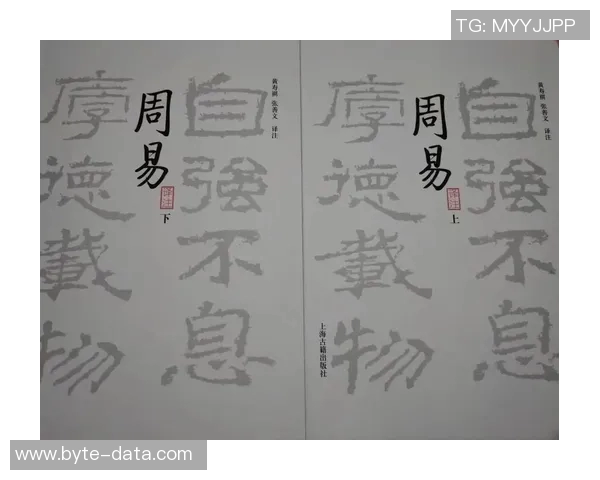 TG: MYYJJPP
自强不息
厚德载物
黄寿祺 张善文 译注
周易
译注
下
自强不息
厚德载物
黄寿祺 张善文 译注
周易
译注
上
上海古籍出版社
www.byte-data.com